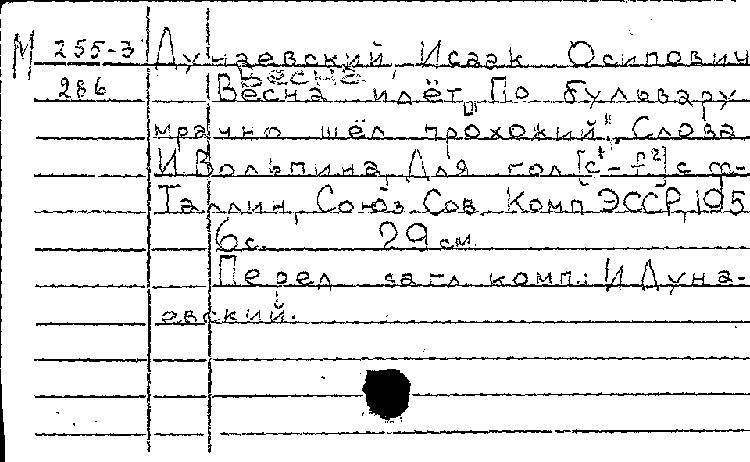 М 255-3 Дунаевский, Исаак Осипович
Весна
286 Весна идёт. „По бульвару
мрачно шёл прохожий". Слова
И Вольпина, Для гол [c¹-f²] с ф-
Таллин, Союз Сов. Комп ЭССР, 195
6 с. 29 см.
Перед загл комп.: И Дуна-
евский.